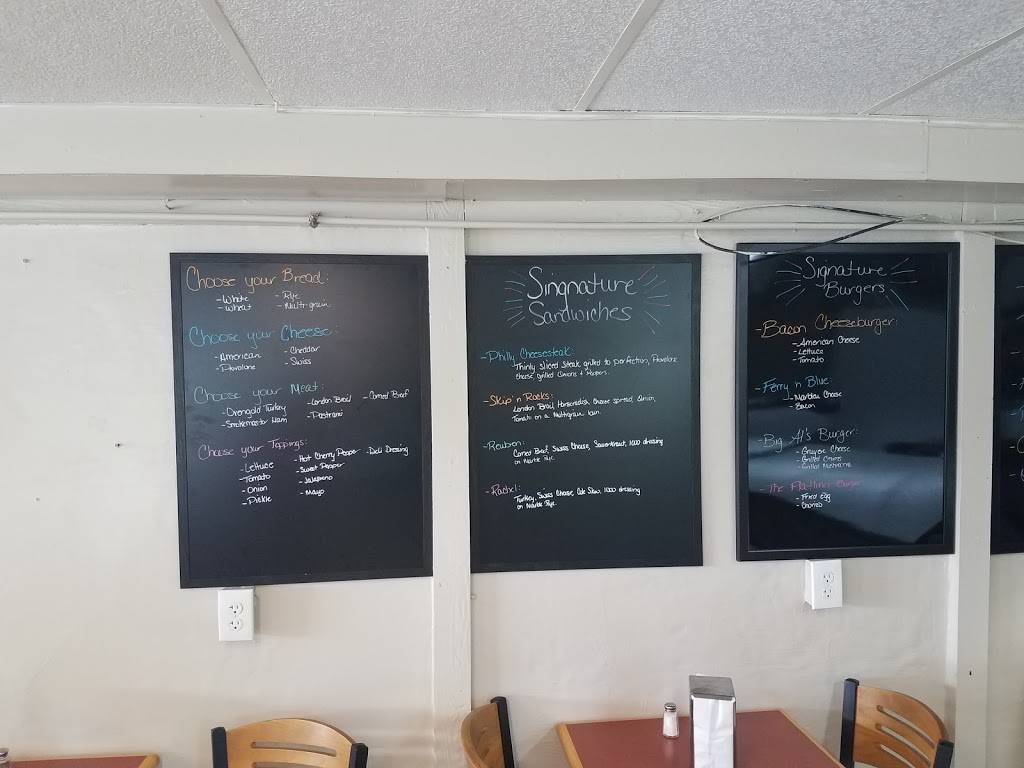 Choose your Bread:
- White - Rye
- Wheat - Multi-grain
Choose your Cheese:
- American - Cheddar
- Provolone - Swiss
Choose your Meat:
- Ovengold Turkey - London Broil - Corned Beef
- Smokemaster Ham - Pastrami
Choose your Toppings:
- Lettuce - Hot Cherry Pepper - Deli Dressing
- Tomato - Sweet Pepper
- Onion - Jalapeno
- Pickle - Mayo
Singnature
Sandwiches
- Philly Cheesesteak:
Thinly sliced steak, grilled to perfection, Provolone
cheese, grilled Onions & Peppers.
- Skip'n Rocks:
London Broil, Horseradish, cheese spread, Onion,
Tomato on a Multigrain
- Reuben:
Corned Beef, Swiss Cheese, Sauerkraut, 1000 dressing
on Marble Rye.
- Rachel:
Turkey, Swiss Cheese, Cole Slaw, 1000 dressing
on Marble Rye.
Signature
Burgers
- Bacon Cheeseburger:
- American Cheese
- Lettuce
- Tomato
- Ferry 'n Blue:
Cheese
- Bacon
- Big Al's Burger:
- Gruyere Cheese
- Grilled Onions
- Grilled Mushrooms
- The Flatliner Burger
- Fried Egg
- Chorizo